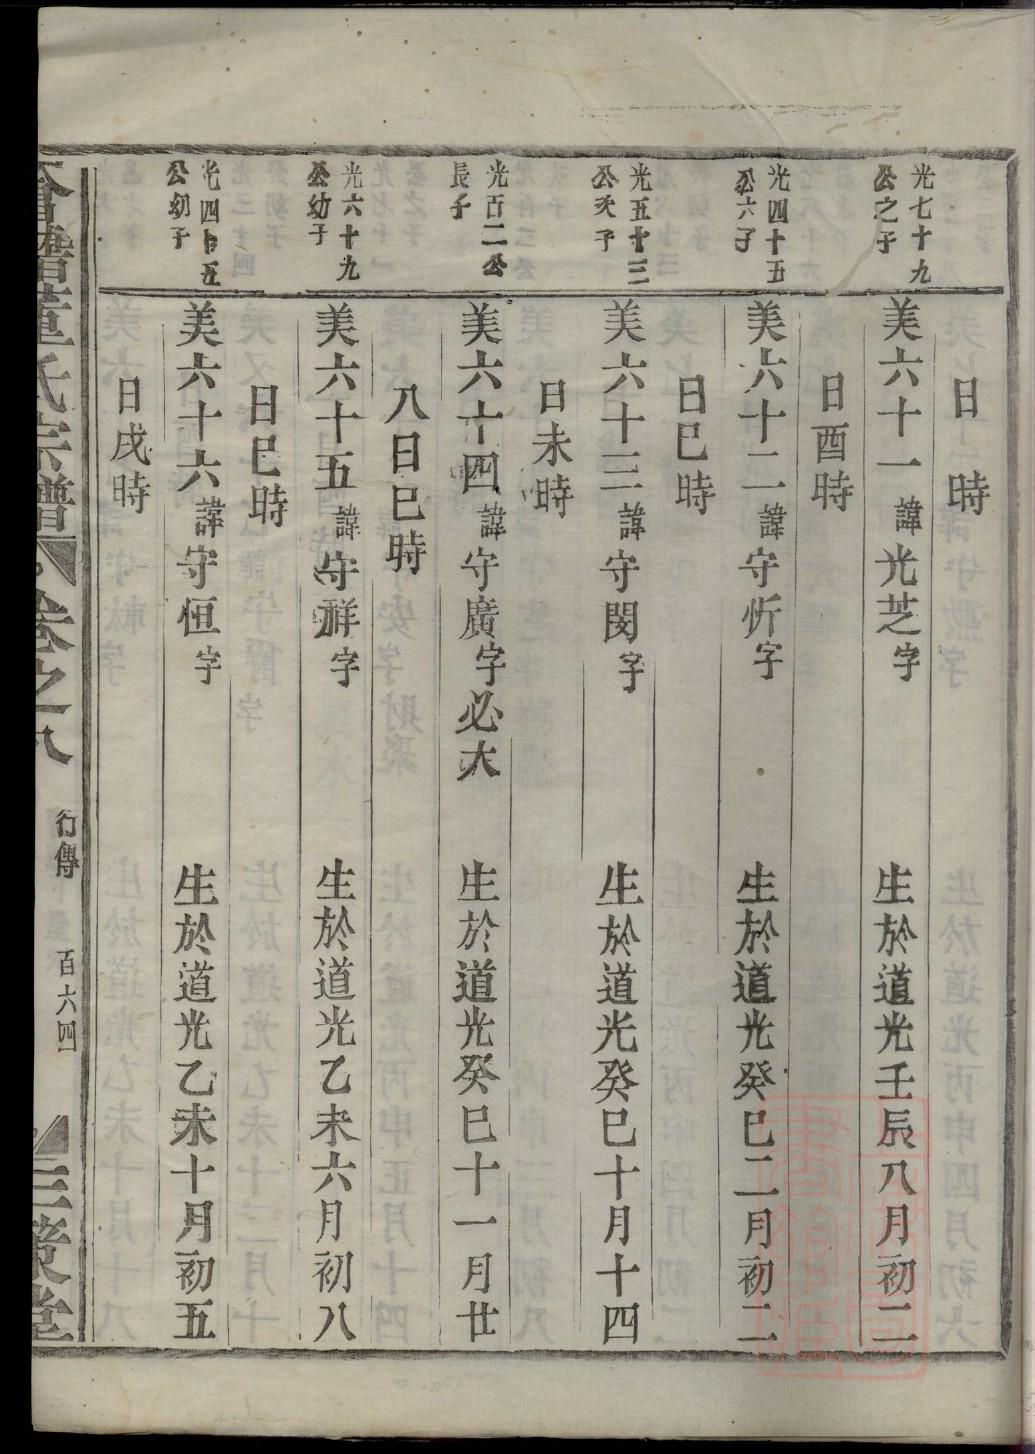 日 時
光七十九
公之子
美六十一諱光芝字 生於道光壬辰八月初二
日酉時
光四十五
公六子
美六十二諱守忻字 生於道光癸巳二月初二
日巳時
光五十三
公次子
美六十三諱守閔字 生於道光癸巳十月十四
日未時
光百二公
長子
美六十四諱守廣字必大 生於道光癸巳十一月廿
八日巳時
光六十九
公幼子
美六十五諱守祥字 生於道光乙未六月初八
日巳時
光四十五
公幼子
美六十六諱守恒字 生於道光乙未十月初五
日戌時
董氏宗譜 卷之八 行傳 百六四 三策堂